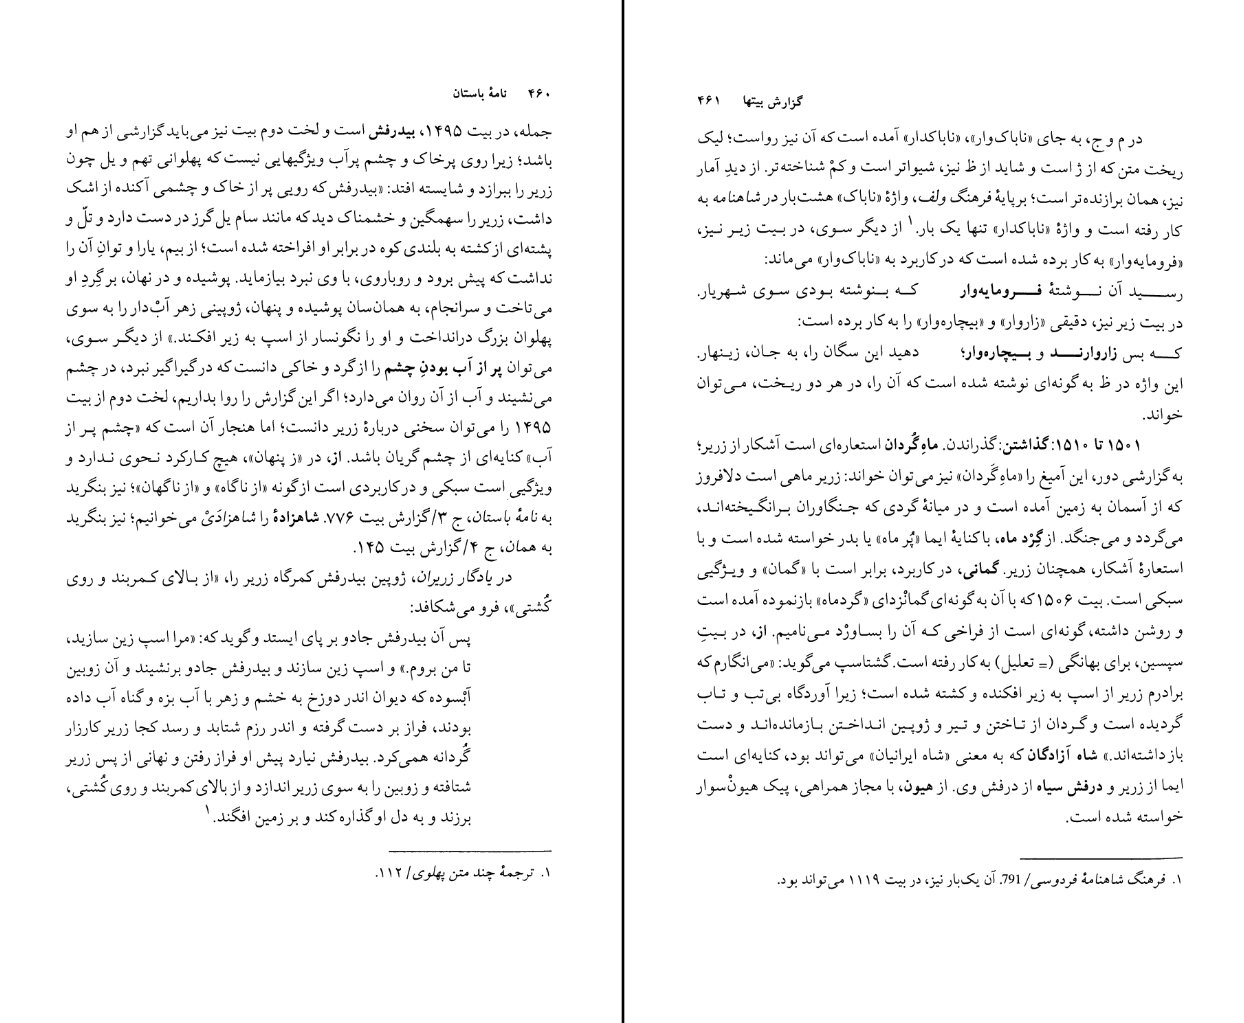 ۴۶۰ نامهٔ باستان
جمله، در بیت ۱۴۹۵، بیدرفش است و لخت دوم بیت نیز می‌باید گزارشی از هم او
باشد؛ زیرا روی پرخاک و چشم پرآب ویژگیهایی نیست که پهلوانی تهم و یل چون
زریر را ببرازد و شایسته افتد: «بیدرفش که رویی پر از خاک و چشمی آکنده از اشک
داشت، زریر را سهمگین و خشمناک دید که مانند سام یل گرز در دست دارد و تلّ و
پشته‌ای از کشته به بلندی کوه در برابر او افراخته شده است؛ از بیم، یارا و توانِ آن را
نداشت که پیش برود و رویاروی، با وی نبرد بیازماید. پوشیده و در نهان، بر گِردِ او
می‌تاخت و سرانجام، به همان‌سان پوشیده و پنهان، ژوپینی زهر آبْ‌دار را به سوی
پهلوان بزرگ درانداخت و او را نگونسار از اسپ به زیر افکند.» از دیگر سوی،
می‌توان پر از آب بودنِ چشم را از گرد و خاکی دانست که در گیراگیر نبرد، در چشم
می‌نشیند و آب از آن روان می‌دارد؛ اگر این گزارش را روا بداریم، لخت دوم از بیت
۱۴۹۵ را می‌توان سخنی دربارهٔ زریر دانست؛ اما هنجار آن است که «چشم پر از
آب» کنایه‌ای از چشم گریان باشد. از، در «ز پنهان»، هیچ کارکرد نحوی ندارد و
ویژگیی است سبکی و در کاربردی است از گونه «از ناگاه» و «از ناگهان»؛ نیز بنگرید
به نامهٔ باستان، ج ۳/گزارش بیت ۷۷۶. شاهزادهٔ را شاهزادَیْ می‌خوانیم؛ نیز بنگرید
به همان، ج ۴/گزارش بیت ۱۴۵.
در یادگار زریران، ژوپین بیدرفش کمرگاه زریر را، «از بالای کمربند و روی
کُشتی»، فرو می‌شکافد:
پس آن بیدرفش جادو بر پای ایستد و گوید که: «مرا اسپ زین سازید،
تا من بروم.» و اسپ زین سازند و بیدرفش جادو برنشیند و آن زوبین
آبْسوده که دیوان اندر دوزخ به خشم و زهر با آب بزه و گناه آب داده
بودند، فراز بر دست گرفته و اندر رزم شتابد و رسد کجا زریر کارزار
گُردانه همی‌کرد. بیدرفش نیارد پیش او فراز رفتن و نهانی از پس زریر
شتافته و زوبین را به سوی زریر اندازد و از بالای کمربند و روی کُشتی،
برزند و به دل او گذاره کند و بر زمین افگند.۱
۱. ترجمهٔ چند متن پهلوی/ ۱۱۲.
گزارش بیتها ۴۶۱
در م و ج، به جای «ناباک‌وار»، «ناباکدار» آمده است که آن نیز رواست؛ لیک
ریخت متن که از ژ است و شاید از ظ نیز، شیواتر است و کمْ شناخته‌تر. از دیدِ آمار
نیز، همان برازنده‌تر است؛ برپایهٔ فرهنگ ولف، واژهٔ «ناباک» هشت‌بار در شاهنامه به
کار رفته است و واژهٔ «ناباکدار» تنها یک بار.۱ از دیگر سوی، در بیت زیر نیز،
«فرومایه‌وار» به کار برده شده است که در کاربرد به «ناباک‌وار» می‌ماند:
رسید آن نوشتهٔ فرومایه‌وار که بنوشته بودی سوی شهریار.
در بیت زیر نیز، دقیقی «زاروار» و «بیچاره‌وار» را به کار برده است:
که بس زاروارند و بیچاره‌وار؛ دهید این سگان را، به جان، زینهار.
این واژه در ظ به گونه‌ای نوشته شده است که آن را، در هر دو ریخت، می‌توان
خواند.
۱۵۰۱ تا ۱۵۱۰: گذاشتن: گذراندن. ماهِ گُردان استعاره‌ای است آشکار از زریر؛
به گزارشی دور، این آمیغ را «ماهِ گَردان» نیز می‌توان خواند: زریر ماهی است دلافروز
که از آسمان به زمین آمده است و در میانهٔ گردی که جنگاوران برانگیخته‌اند،
می‌گردد و می‌جنگد. از گِرْد ماه، با کنایهٔ ایما «پُر ماه» یا بدر خواسته شده است و با
استعارهٔ آشکار، همچنان زریر. گمانی، در کاربرد، برابر است با «گمان» و ویژگیی
سبکی است. بیت ۱۵۰۶ که با آن به گونه‌ای گمانْزدای «گردماه» بازنموده آمده است
و روشن داشته، گونه‌ای است از فراخی که آن را بساورْد می‌نامیم. از، در بیتِ
سپسین، برای بهانگی (= تعلیل) به کار رفته است. گشتاسپ می‌گوید: «می‌انگارم که
برادرم زریر از اسپ به زیر افکنده و کشته شده است؛ زیرا آوردگاه بی‌تب و تاب
گردیده است و گردان از تاختن و تیر و ژوپین انداختن بازمانده‌اند و دست
بازداشته‌اند.» شاه آزادگان که به معنی «شاه ایرانیان» می‌تواند بود، کنایه‌ای است
ایما از زریر و درفش سیاه از درفش وی. از هیون، با مجاز همراهی، پیک هیونْ‌سوار
خواسته شده است.
۱. فرهنگ شاهنامهٔ فردوسی/ 791. آن یک‌بار نیز، در بیت ۱۱۱۹ می‌تواند بود.